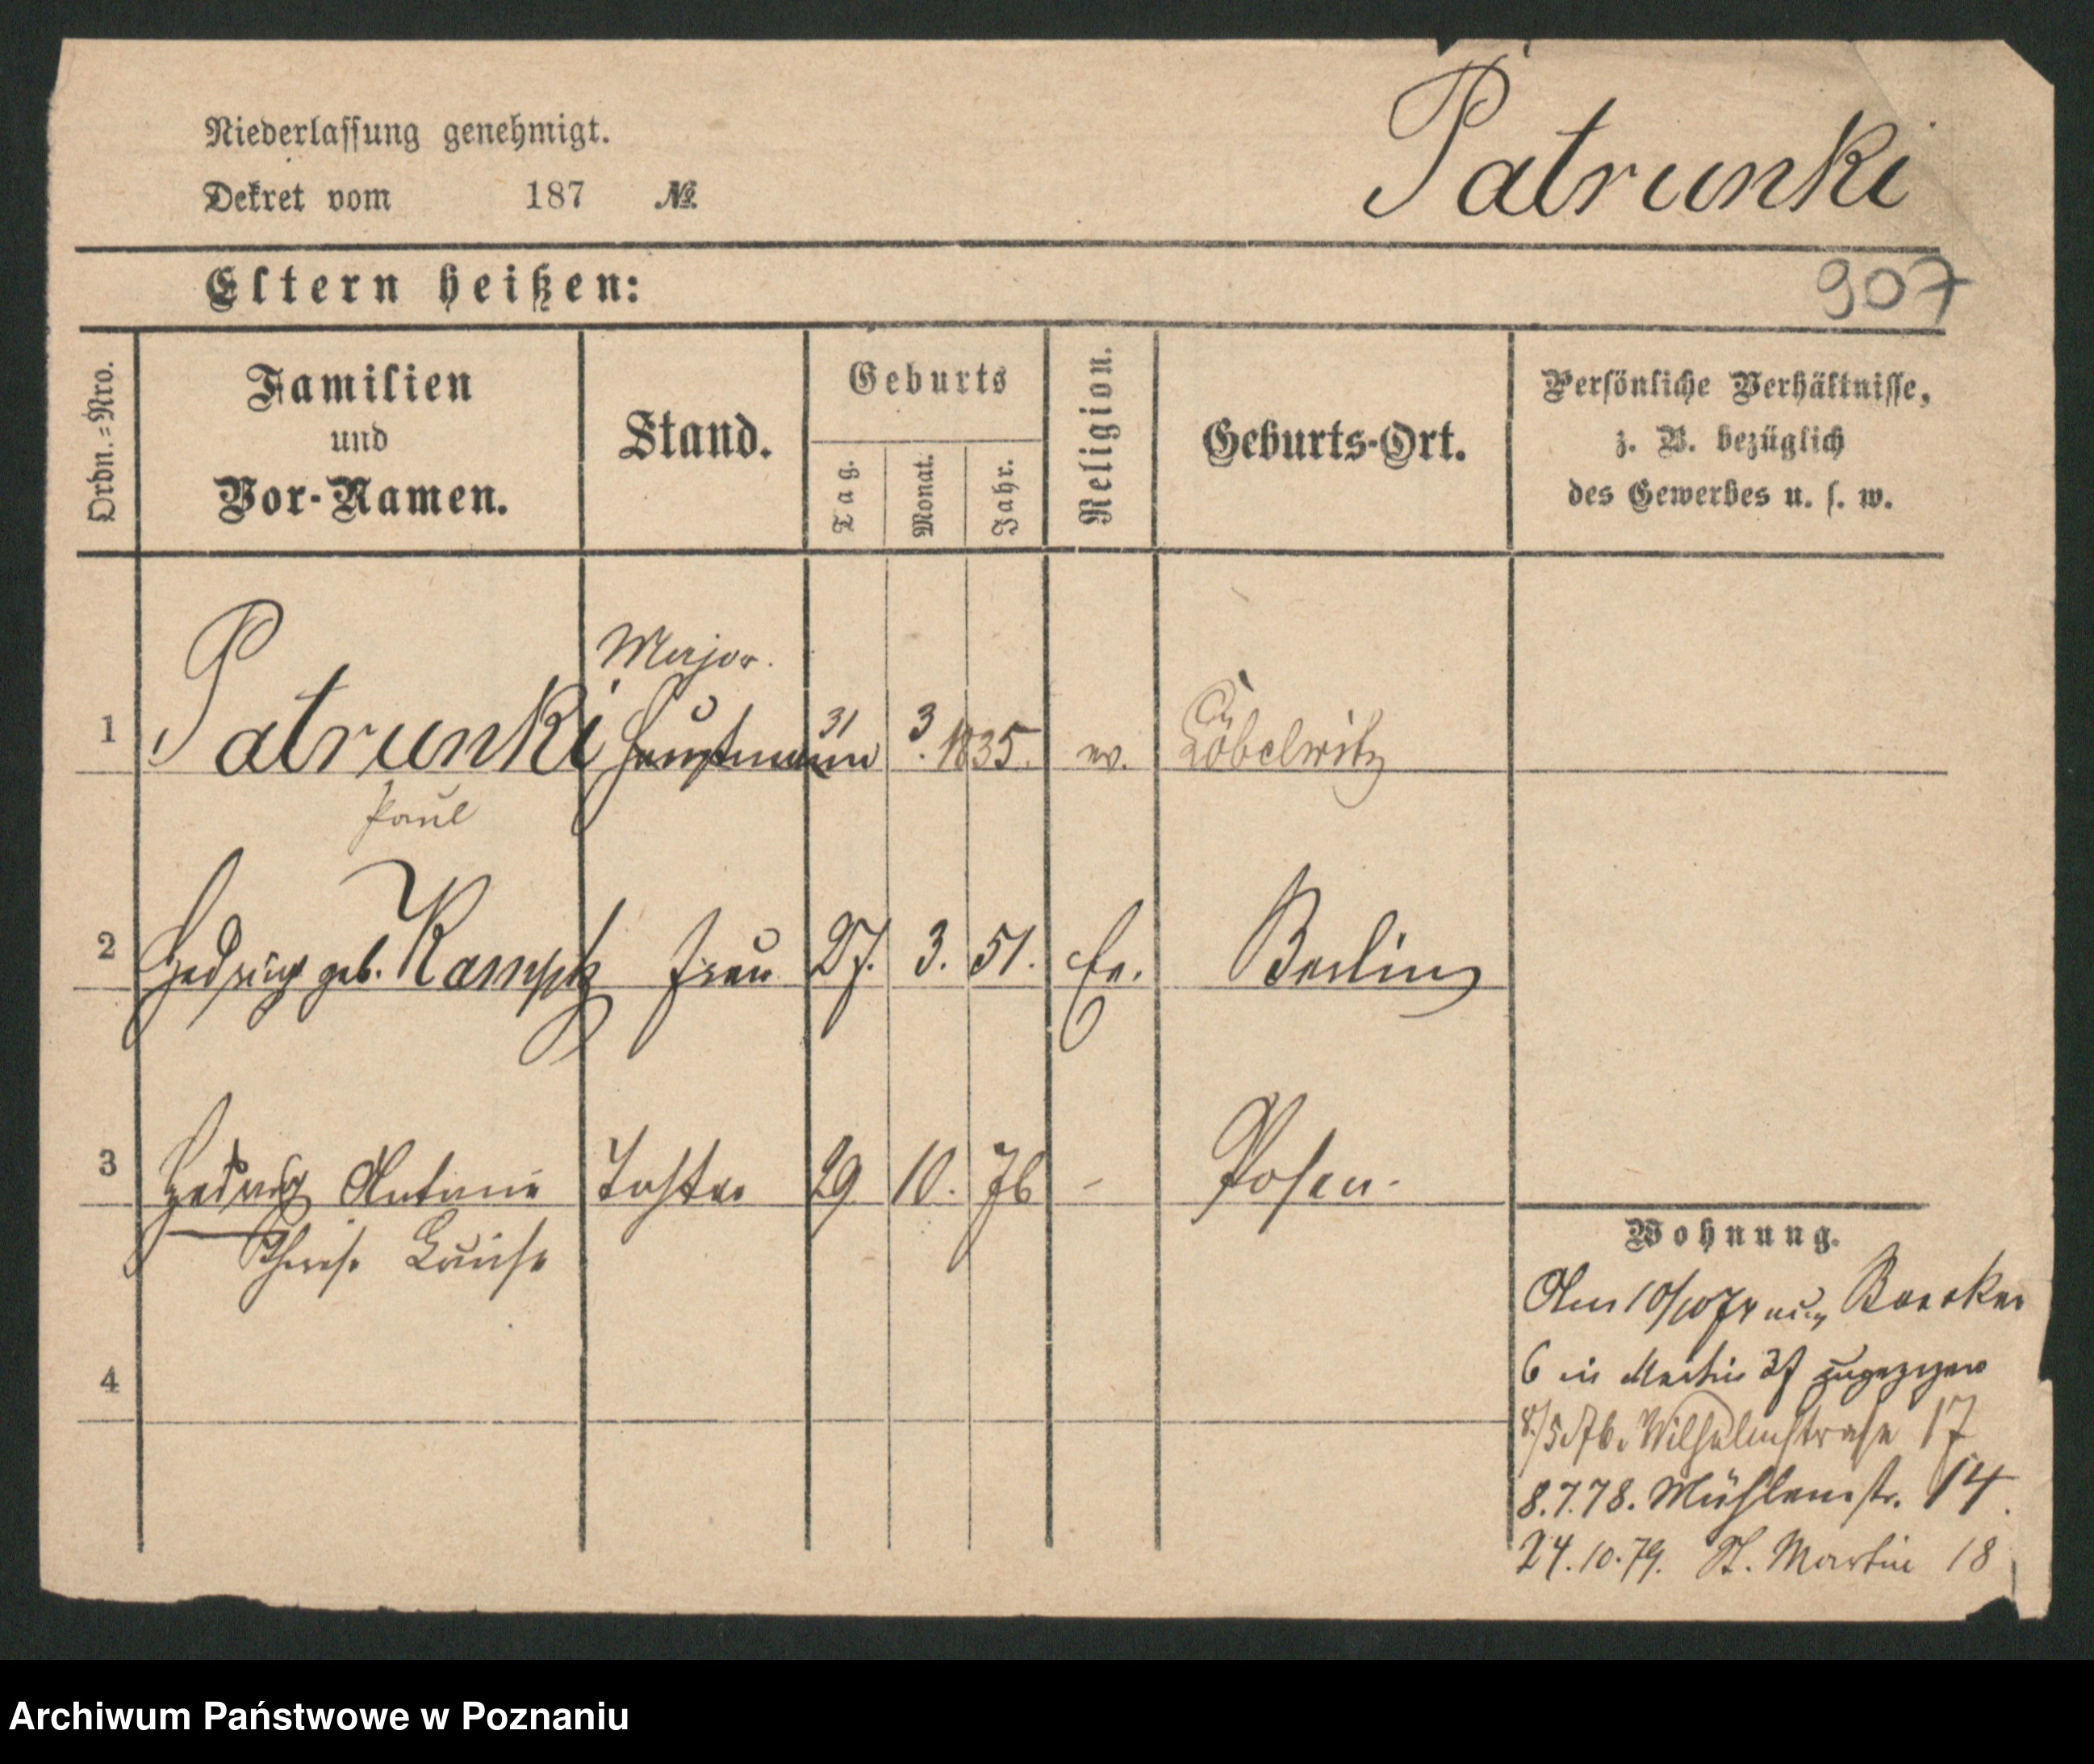 Niederlassung genehmigt.
Dekret vom 187 №
Patrunki
907
Eltern heißen:
Ordn.=Nro.
Familien
und
Vor-Namen.
Stand.
Geburts
Tag.
Monat.
Jahr.
Religion.
Geburts-Ort.
Persönliche Verhältnisse,
z. B. bezüglich
des Gewerbes u. s. w.
Major.
1 Patrunki Hauptmann 31 3. 1835. ev. Löbelwitz
Paul
2 Hedwig geb. Kamptz Frau 27. 3. 51. Ev. Berlin
3 Hedwig Antonie Tochter 29 10. 76 - Posen.
Therese Luise
4
Wohnung.
Am 10/10 74 Baecker
6 in Martin zugezogen
8/5.76. Wilhelmstraße 17
8.7.78. Mühlenstr. 14.
24.10.79. St. Martin 18
Archiwum Państwowe w Poznaniu